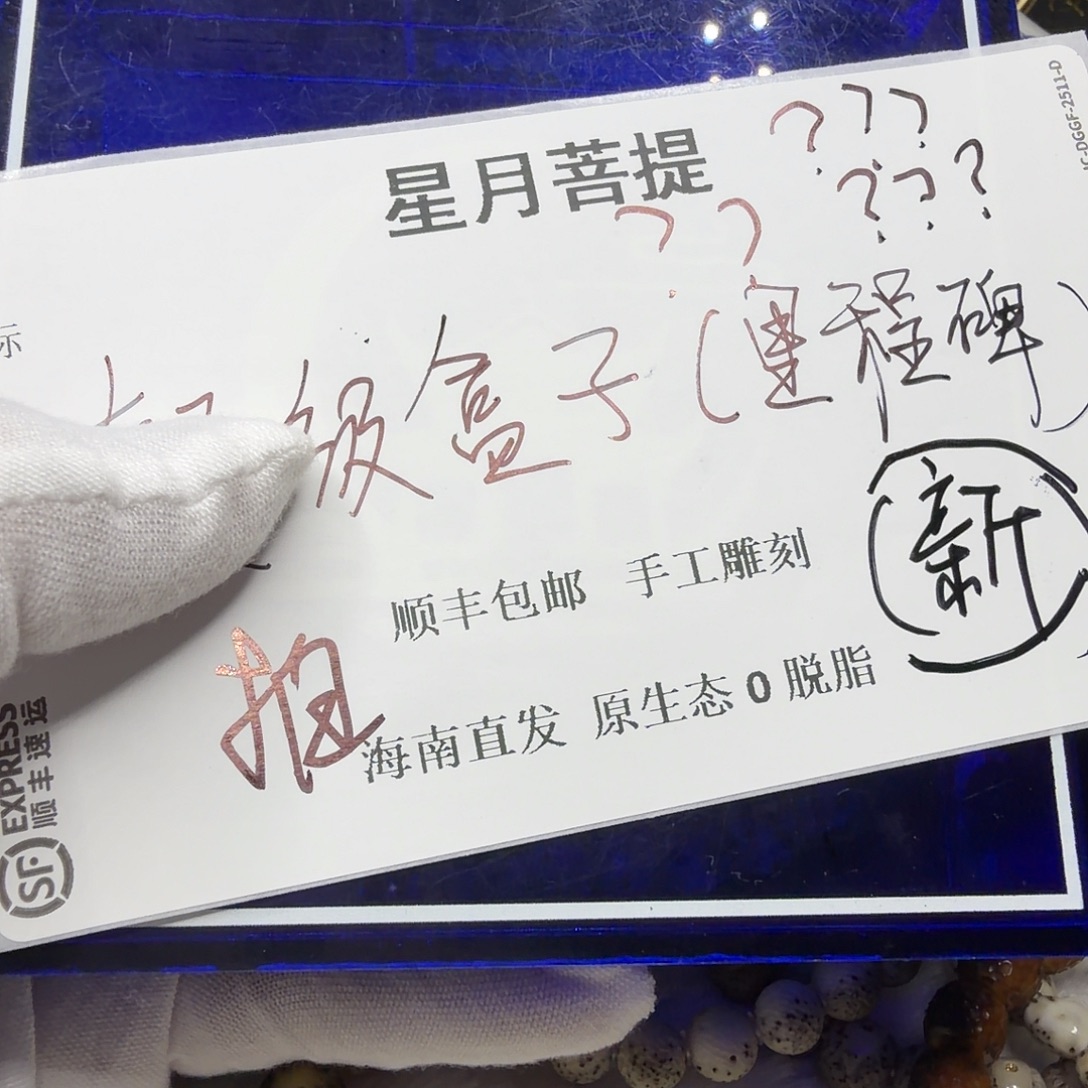 JC-DGGF-2511-D
???
星月菩提
???
??
示
超级盒子(里程碑)
新
顺丰包邮 手工雕刻
拍
海南直发 原生态0脱脂
SF EXPRESS
顺丰速运